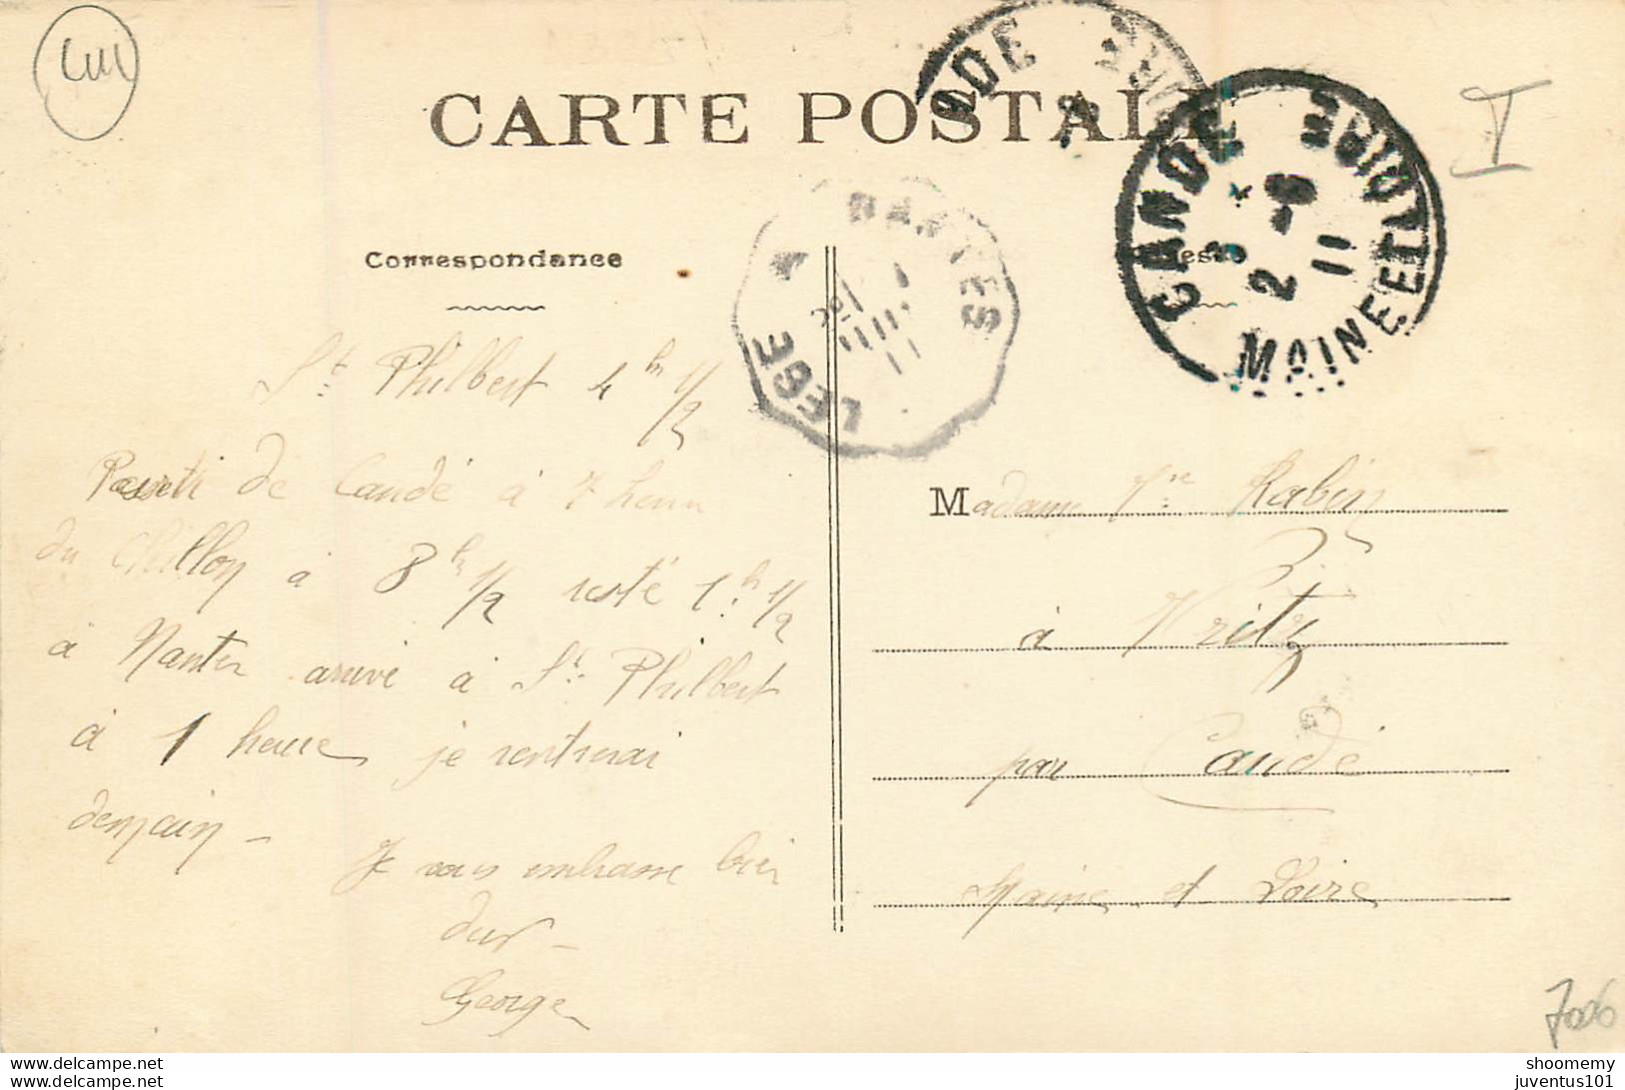 CARTE POSTALE
Correspondance
St Philbert 4h 1/2
de Candé à 7 heures
du Chillon à 8h 1/2 resté 1h 1/2
à Nantes arrivé à St Philbert
à 1 heure je rentrerai
demain -
Je vous embrasse bien
dur -
George
NANTES A LEGE
1 11
CANDE
CANDE MAINE ET LOIRE
2 -6 11
Madame Rabin
à Vritz
par Candé
Maine et Loire
I
7006
shoomemy
juventus101